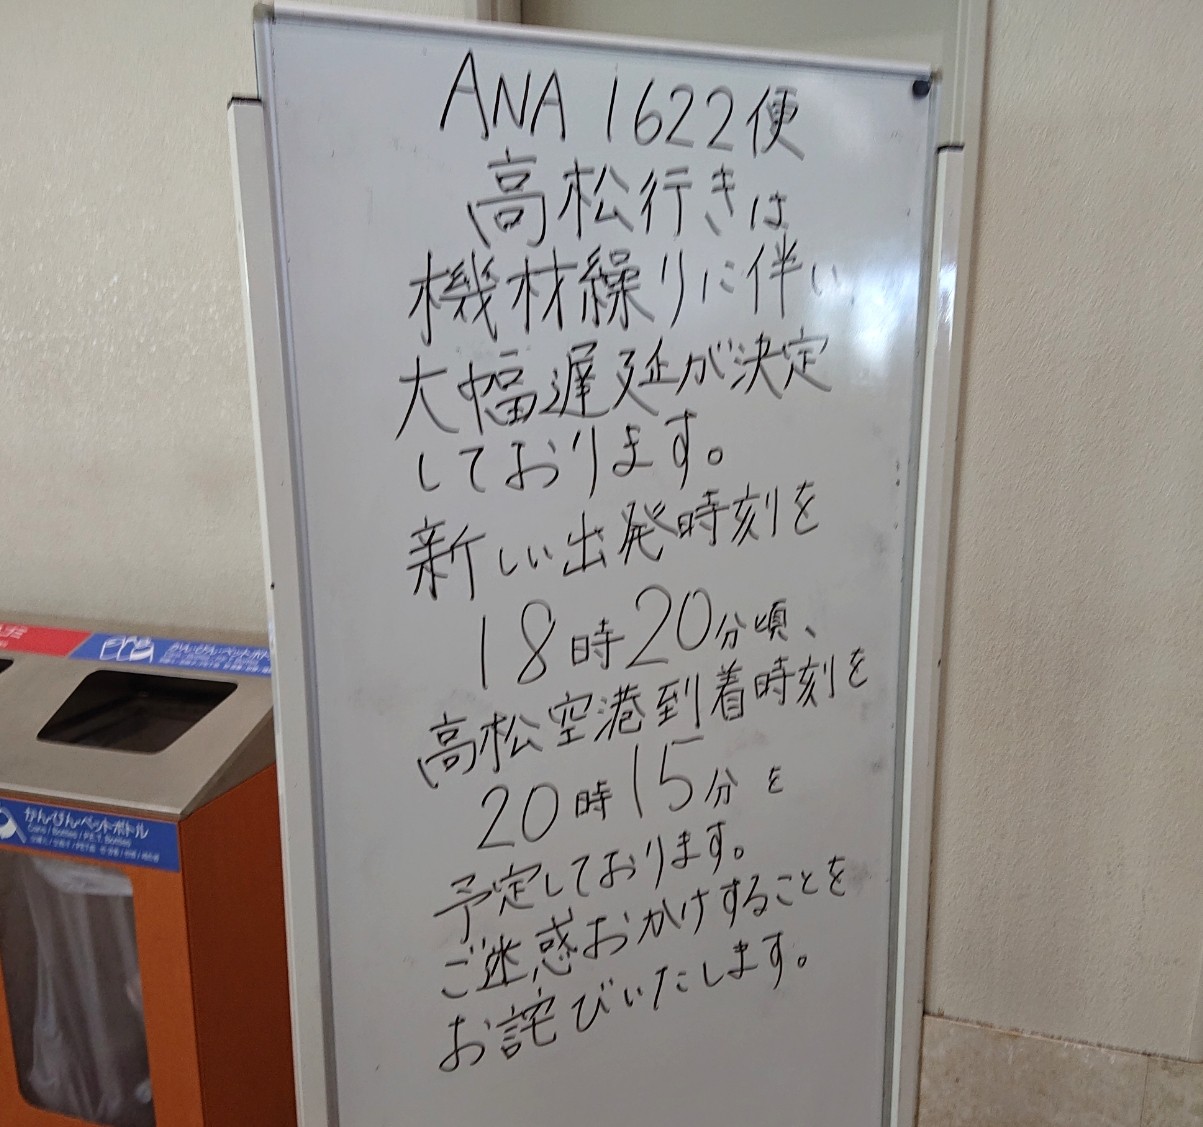 ANA 1622便
高松行きは
機材繰りに伴い
大幅遅延が決定
しております。
新しい出発時刻を
18時20分頃、
高松空港到着時刻を
20時15分を
予定しております。
ご迷惑おかけすることを
お詫びいたします。
かん・びん・ペットボトル
かん・びん・ペットボトル
Cans / Bottles / P.E.T. Bottles